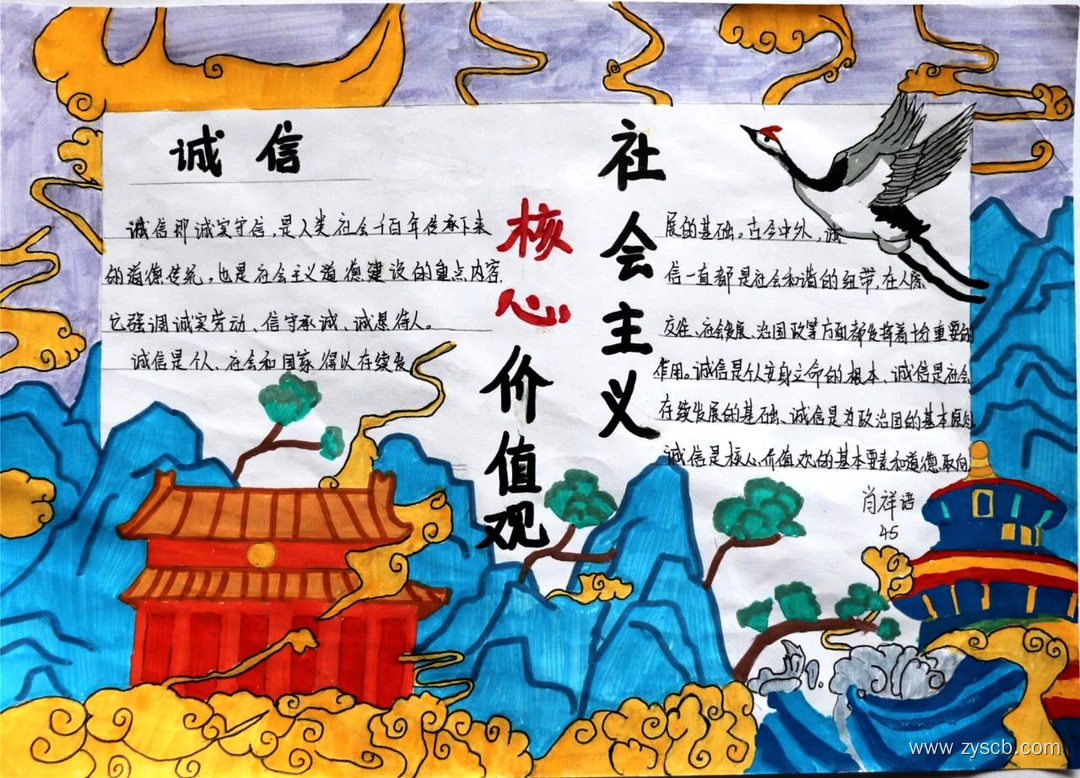 社会主义
核心价值观
诚信
诚信即诚实守信，是人类社会千百年传承下来
的道德传统，也是社会主义道德建设的重点内容，
它强调诚实劳动、信守承诚、诚恳待人。
诚信是个人、社会和国家得以存续发
展的基础。古今中外，诚
信一直都是社会和谐的纽带，在人际
交往、社会发展、治国政等方面都发挥着十分重要的
作用。诚信是个人安身立命的根本、诚信是社会
存续发展的基础、诚信是为政治国的基本原则
诚信是核心价值观的基本要素和道德取向
肖祥语
45
www.zyscb.com